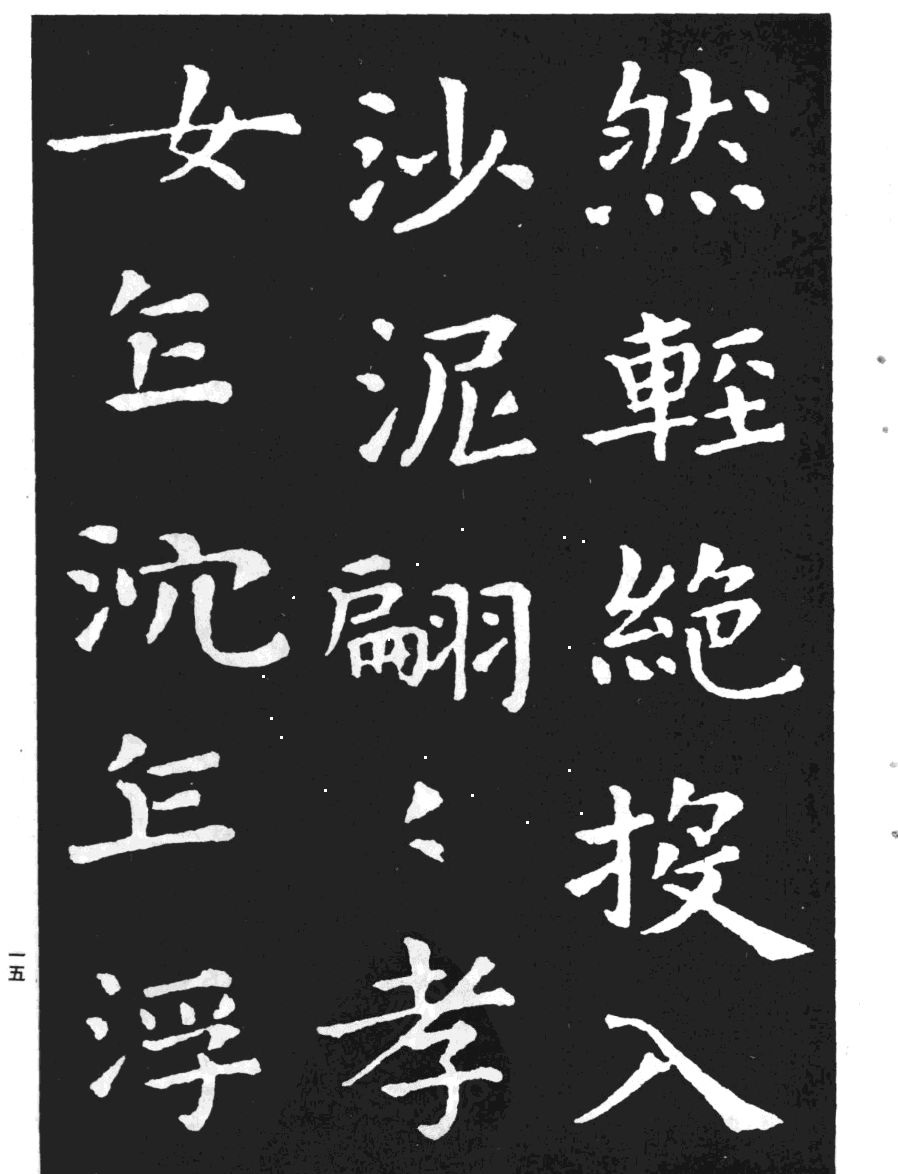 然輕絶投入
沙泥翩〻孝
女乍沈乍浮
一五